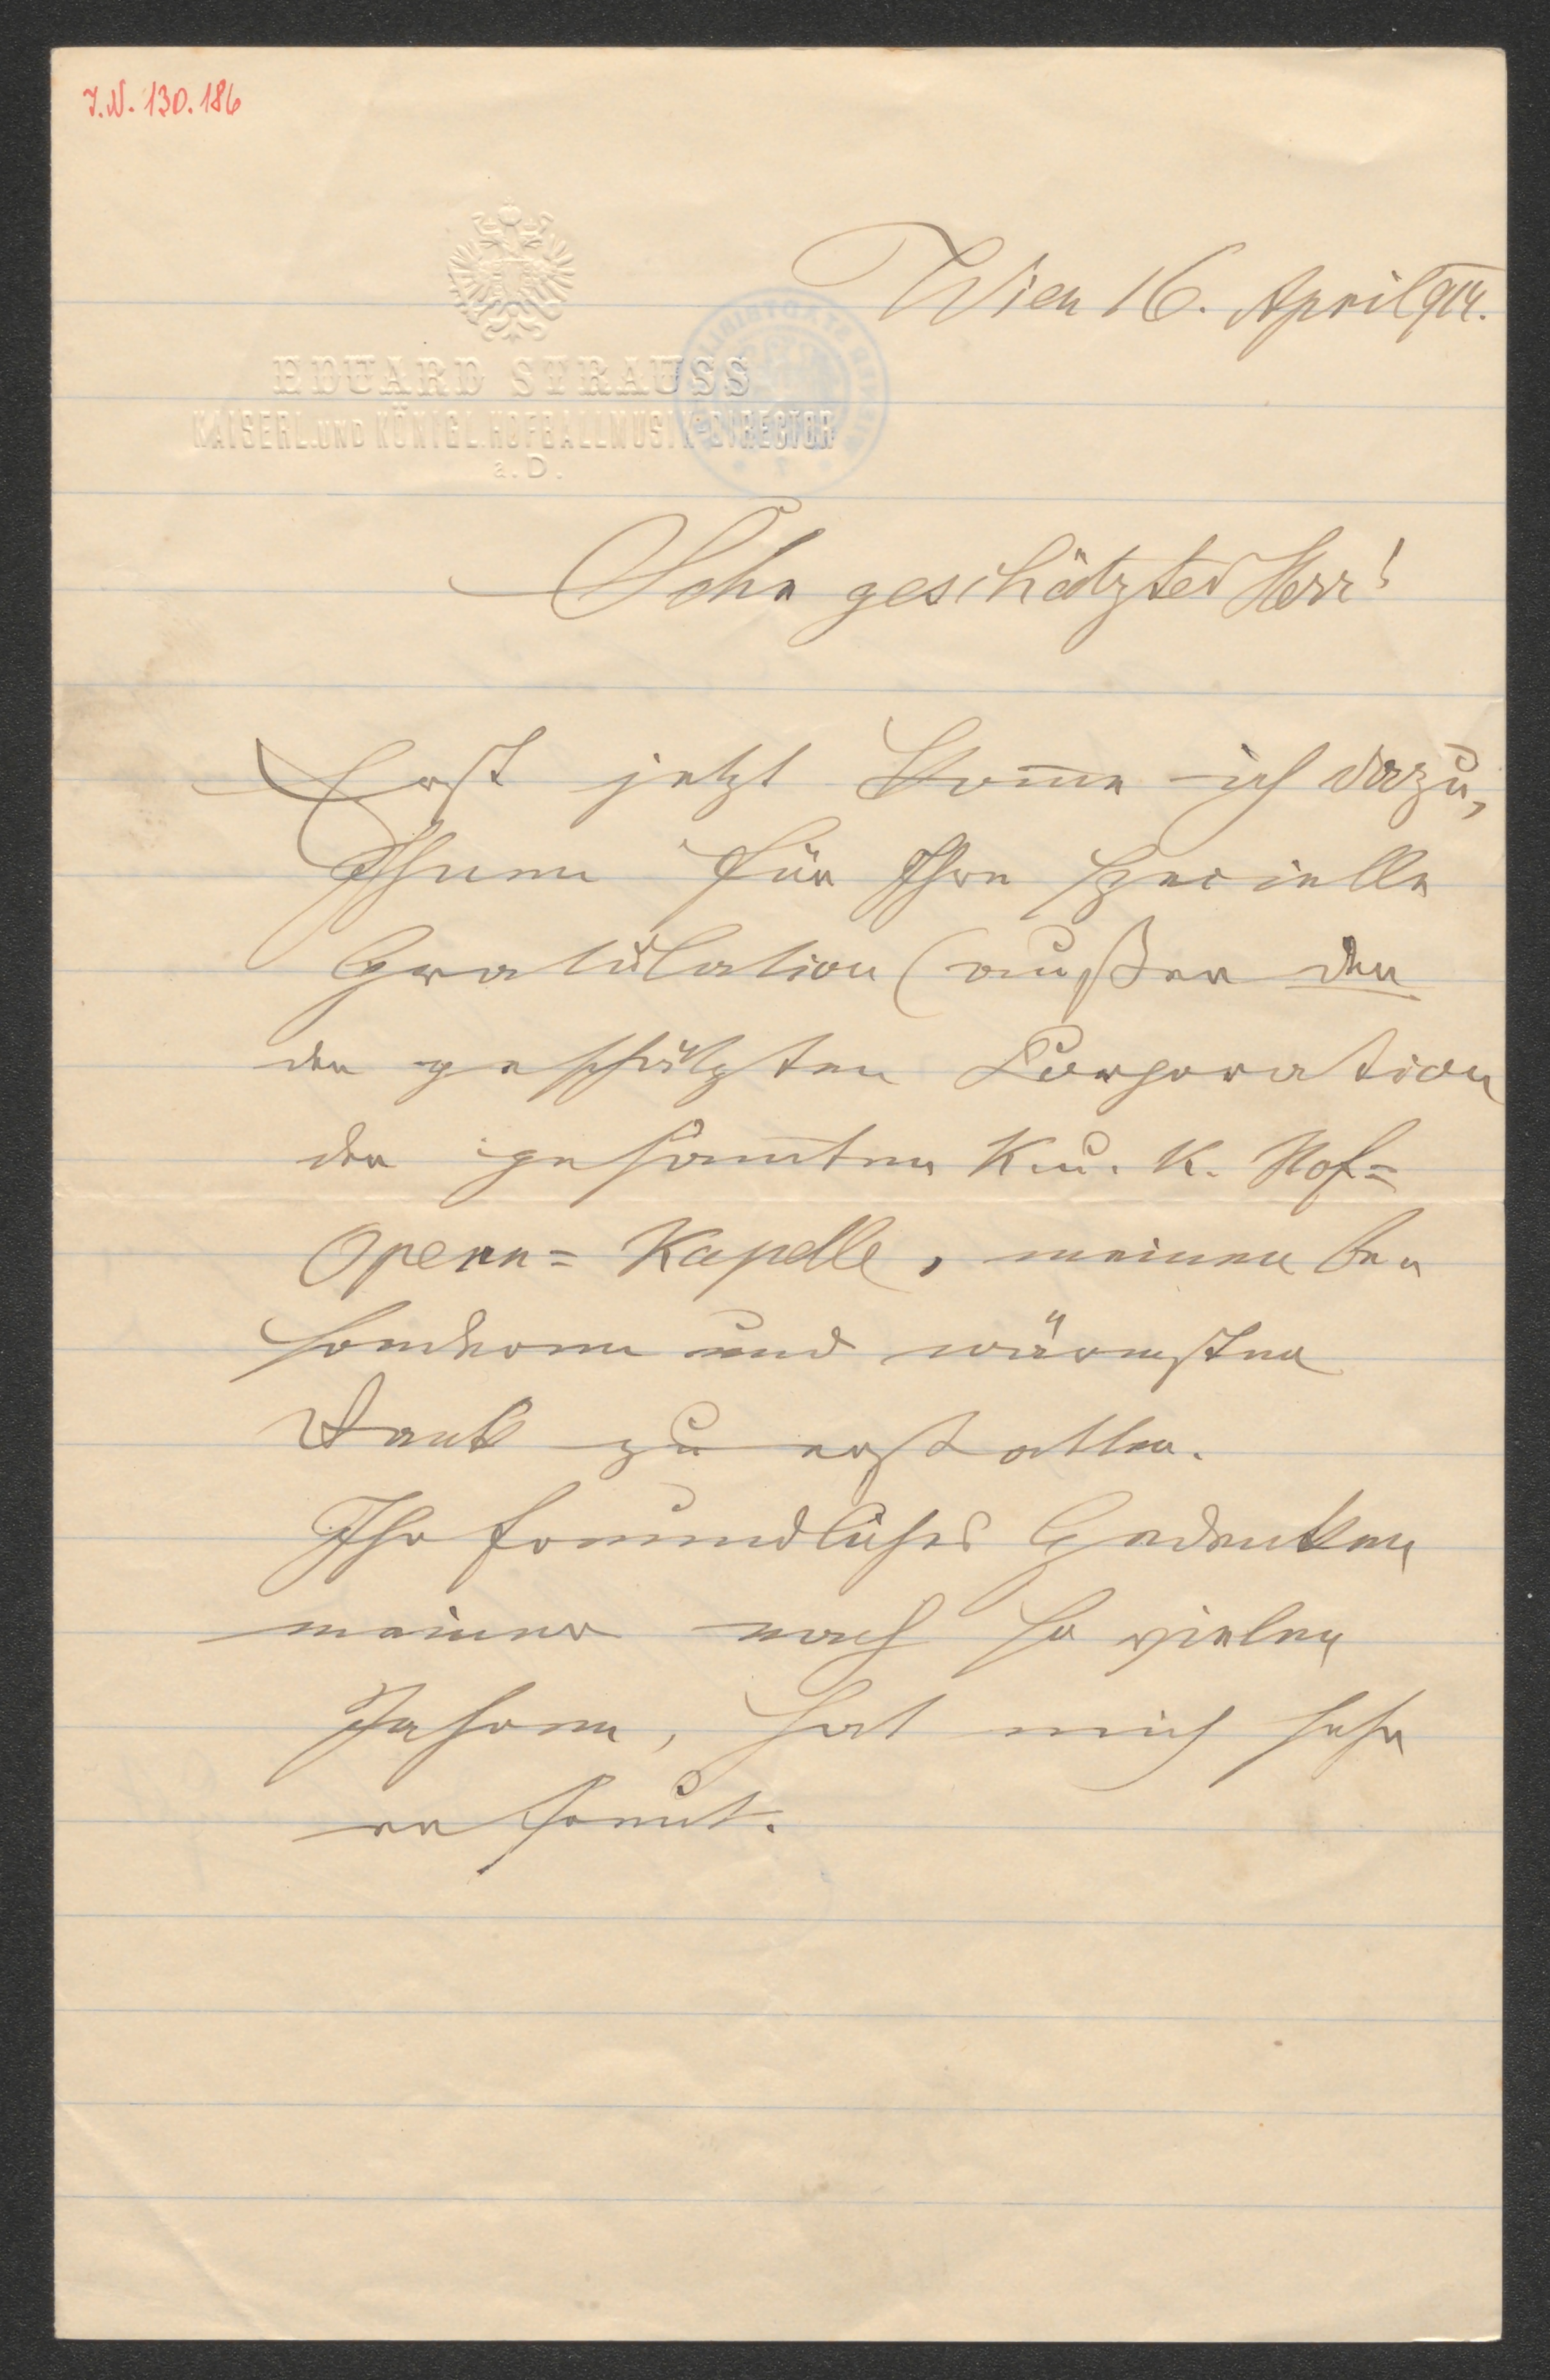 J.N. 130.186
Wien 16. April 914.
EDUARD STRAUSS
KAISERL. UND KÖNIGL. HOFBALLMUSIK-DIRECTOR
a. D.
Sehr geschätzter Herr!
Erst jetzt komme ich dazu,
Ihnen für Ihre specielle
Gratulation (außer der
der geschätzten Corporation
der gesam̅ten K. u. K. Hof=
Opern= Kapelle, meinen be
sonderen und wärmsten
Dank zu erstatten.
Ihr freundliches Gedenken
meiner nach so vielen
Jahren, hat mich sehr
erfreut.